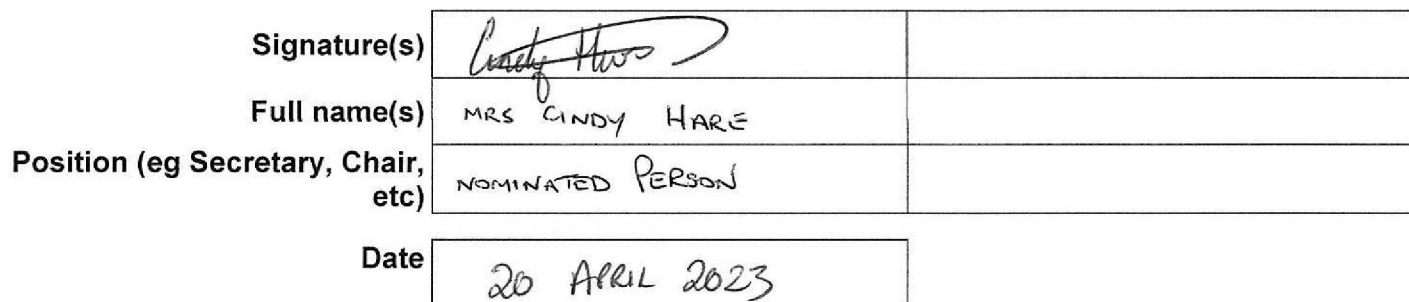 Signature(s)
Full name(s) MRS CINDY HARE
Position (eg Secretary, Chair, etc) NOMINATED PERSON
Date 20 APRIL 2023